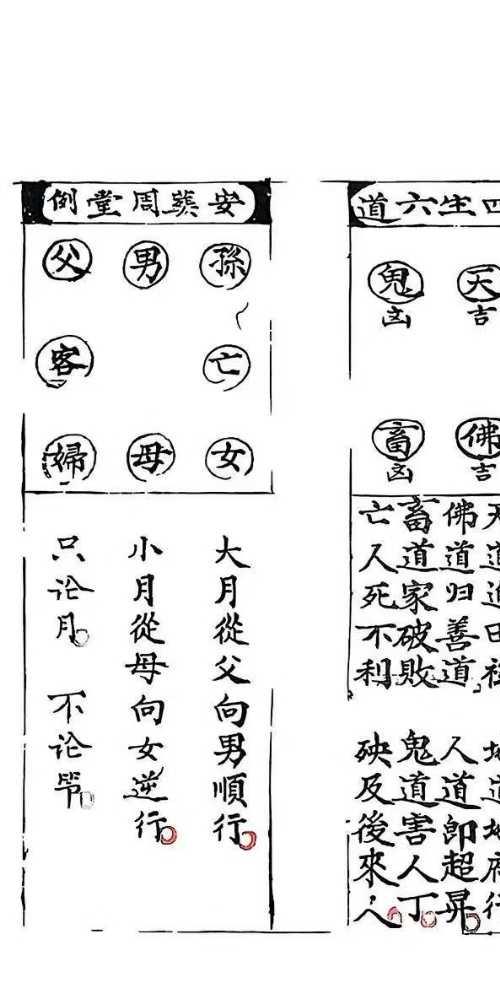 生六道
天 鬼
吉 凶
佛 畜
吉 凶
佛道归善道 人道即超昇
畜道家破敗 鬼道害人丁
亡人死不利 殃及後來人
安葬周堂例
孫 男 父
亡 客
女 母 婦
大月從父向男順行
小月從母向女逆行
只论月 不论节